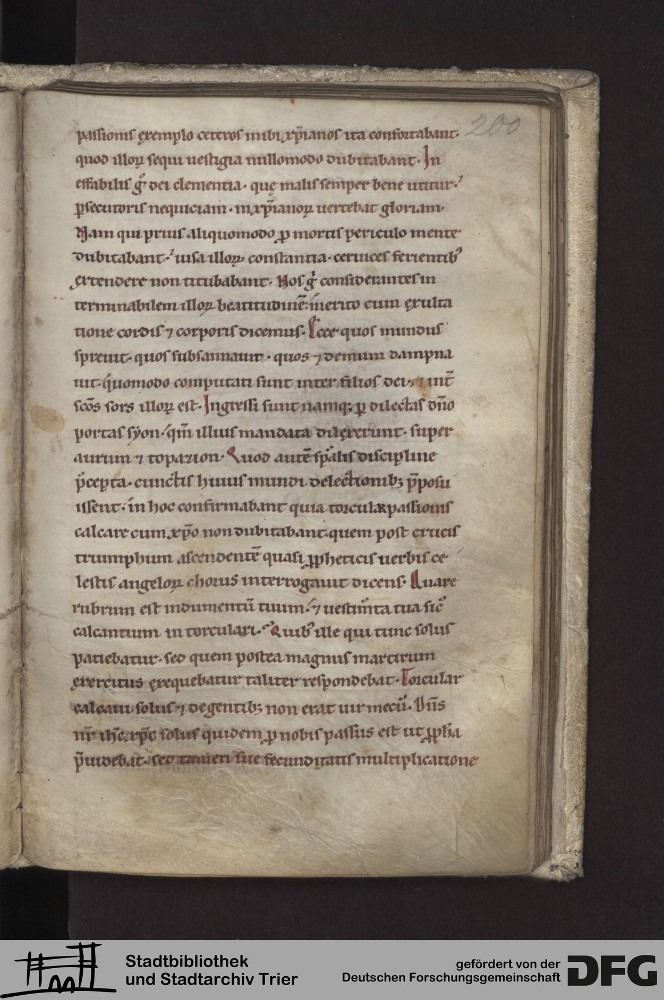 200
passionis exemplo ceteros inibi xp̄ianos ita confortabant·
quod illoꝝ sequi uestigia nullomodo dubitabant· In
effabilis g̊ dei clementia· quę malis semper bene utitur·
ꝑsecutoris nequiciam· in xp̄ianoꝝ uertebat gloriam·
Nam qui prius aliquomodo ꝓ mortis periculo mente
dubitabant· uisa illoꝝ constantia· ceruices ferientibꝰ
extendere non titubabant· Nos g̊ considerantes in
terminabilem illoꝝ beatitudinē· merito cum exulta
tione cordis ⁊ corporis dicemus· Ecce quos mundus
spreuit· quos subsannauit· quos ⁊ demum dampna
uit· quomodo computati sunt inter filios dei· ⁊ int̄
sc̄os sors illoꝝ est· Ingressi sunt namqꝫ ꝑ dilectas dn̄o
portas syon· qm̄ illius mandata dilexerunt· super
aurum ⁊ topazion· Quod autē sp̄alis discipline
p̄cepta· cunctis huius mundi delectionibꝫ p̄posu
issent· in hoc confirmabant quia torcular passionis
calcare cum xp̄o non dubitabant· quem post crucis
triumphum ascendentē quasi ꝓpheticis uerbis ce-
lestis angeloꝝ chorus interrogauit dicens· Quare
rubrum est indumentū tuum· ⁊ uestim̄ta tua sic̄
calcantium in torculari· Quibꝰ ille qui tunc solus
patiebatur· sed quem postea magnus martirum
exercitus exequebatur taliter respondebat· Torcular
calcaui solus ⁊ de gentibꝫ non erat uir mecū· Dn̄s
nr̄ ih̄c xp̄c solus quidem ꝓ nobis passus est ut ꝓpha
p̄uidebat· sed tamen sue fecunditatis multiplicatione
Stadtbibliothek
und Stadtarchiv Trier
gefördert von der
Deutschen Forschungsgemeinschaft
DFG